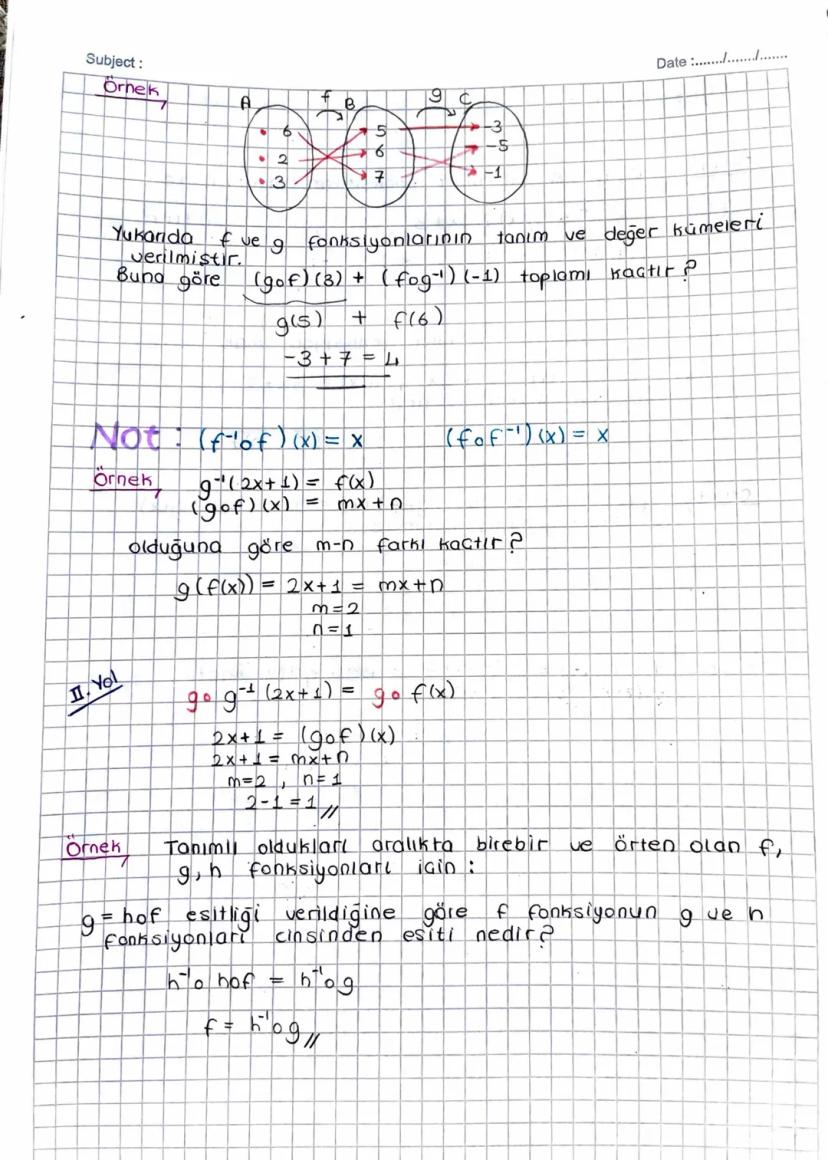 Subject : Date :......./......./.......
Örnek
A f B g C
6 5 -3
2 6 -5
3 7 -1
Yukarıda f ve g fonksiyonlarının tanım ve değer kümeleri
verilmiştir.
Buna göre (gof)(3) + (fog⁻¹)(-1) toplamı kaçtır?
g(5) + f(6)
-3 + 7 = 4
Not : (f⁻¹of)(x) = x (fof⁻¹)(x) = x
Örnek g⁻¹(2x+1) = f(x)
(gof)(x) = mx+n
olduğuna göre m-n farkı kaçtır?
g(f(x)) = 2x+1 = mx+n
m=2
n=1
II. Yol go g⁻¹(2x+1) = go f(x)
2x+1 = (gof)(x)
2x+1 = mx+n
m=2 , n=1
2-1=1//
Örnek Tanımlı oldukları aralıkta birebir ve örten olan f,
g,h fonksiyonları için :
g=hof eşitliği verildiğine göre f fonksiyonun g ve h
fonksiyonları cinsinden eşiti nedir?
h⁻¹o hof = h⁻¹og
f = h⁻¹og//